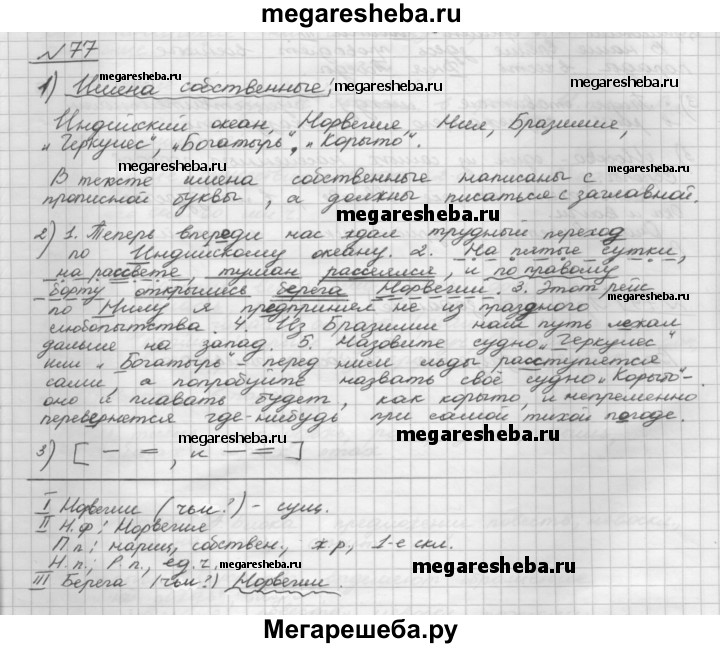 megaresheba.ru
№77
1) Имена собственные:
megaresheba.ru megaresheba.ru megaresheba.ru
Индийский океан, Норвегия, Нил, Бразилия,
„Геркулес", „Богатырь", „Корыто".
megaresheba.ru
В тексте имена собственные написаны с
прописной буквы, а должны писаться с заглавной.
megaresheba.ru
2) 1. Теперь впереди нас ждал трудный переход
по Индийскому океану. 2. На пятые сутки,
на рассвете, туман рассеялся, и по правому
борту открылись берега Норвегии. 3. Этот рейс
по Нилу я предпринял не из праздного
любопытства. 4. Из Бразилии наш путь лежал
дальше на запад. 5. Назовите судно „Геркулес"
или „Богатырь" - перед ним льды расступятся
сами, а попробуйте назвать своё судно „Корыто" -
оно и плавать будет, как корыто, и непременно
перевернётся где-нибудь при самой тихой погоде.
megaresheba.ru megaresheba.ru
3) [ — = , и — = ]
megaresheba.ru
I Норвегии (чьи?) - сущ.
II Н.ф: Норвегия
П п: нариц, собствен., ж р, 1-е скл.
Н. п.: Р. п., ед. ч.
megaresheba.ru megaresheba.ru
III Берега (чьи?) Норвегии.
Мегарешеба.ру